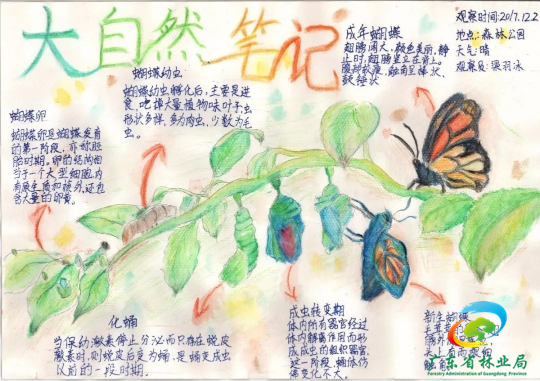 大自然笔记
观察时间:2017.12.2
地点:森林公园
天气:晴
成年蝴蝶
翅膀阔大,颜色美丽,静
止时,翅膀竖立在背上。
腹部较瘦,触角呈棒状,
蝴蝶幼虫
蝴蝶幼虫孵化后,主要是进
食,吃掉大量植物叶子,虫
形状多样,多为肉虫,少数为毛
虫。
蝴蝶卵
蝴蝶卵是蝴蝶发育
的第一阶段,
胎时期。卵的结构相
当于一个大型细胞,内
含大量的卵黄。
化蛹
当保幼激素停止分泌而只存在蜕皮
激素时,则蜕皮后变为蛹,是蛹变成虫
以前的一段时期。
成虫转变期
体内所有器官经过
体内解离作用而形
成成虫的组织器官。
这一阶段,蛹体伤
新生蝴蝶
广东省林业局
Forestry Administration of Guangdong Province